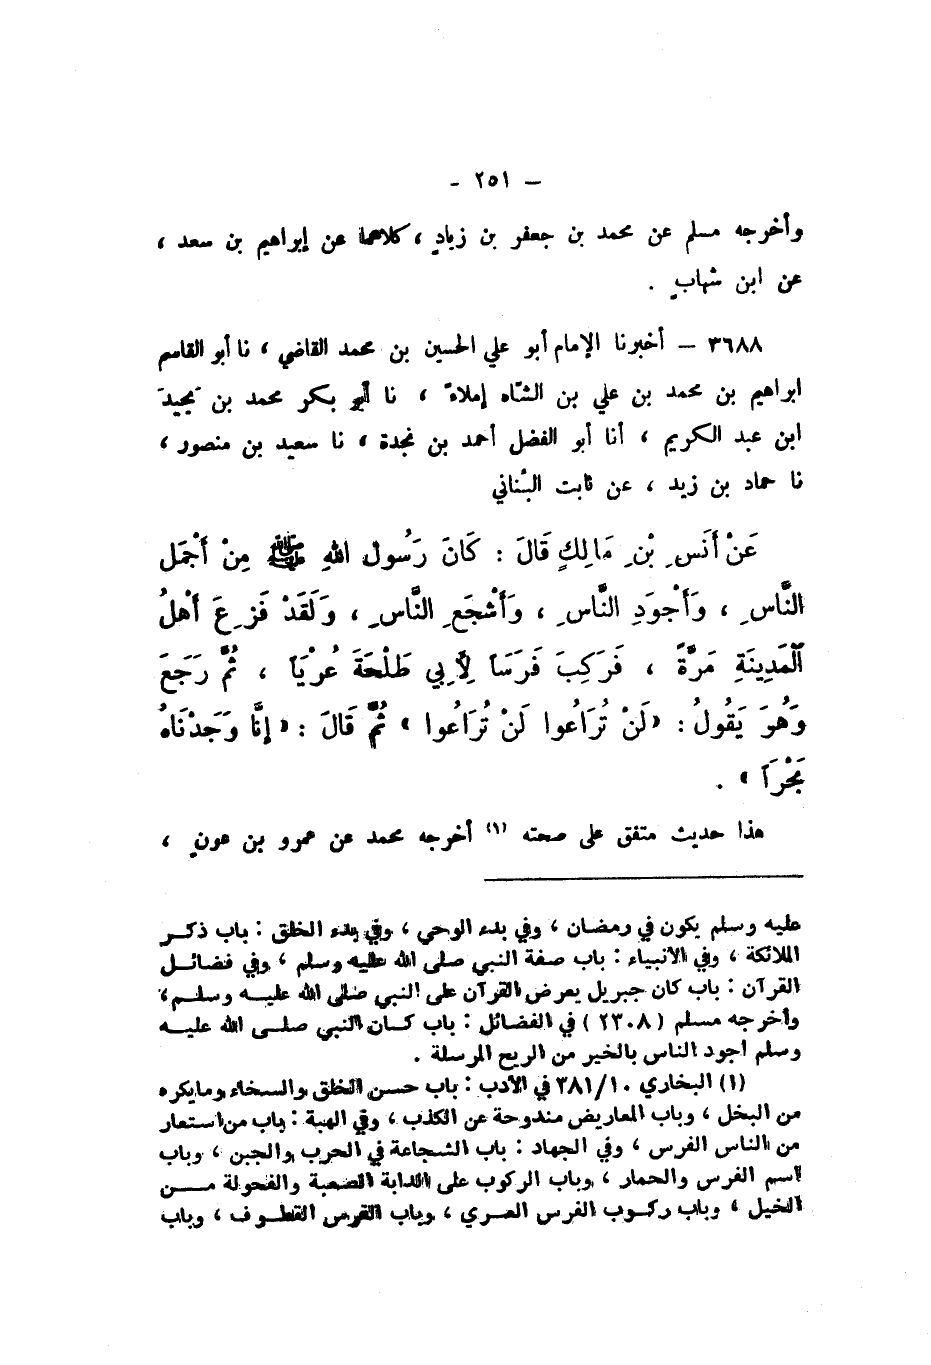 – ٢٥١ -
وأخرجه مسلم عن محمد بن جعفر بن زيادٍ ، كلاهما عن إبراهيم بن سعد ،
عن ابن شهابٍ .
٣٦٨٨ – أخبرنا الإمام أبو علي الحسين بن محمد القاضي ، نا أبو القاسم
ابراهيم بن محمد بن علي بن الشَّاه إملاءً ، نا أبو بكر محمد بن
ابن عبد الكريم ، أنا أبو الفضل أحمد بن نجدة ، نا سعيد بن منصور ،
نا حماد بن زيد ، عن ثابت البُناني
عَنْ أَنَسِ بْنِ مَالِكٍ قَالَ : كَانَ رَسُول اللهِ ﷺ مِنْ أَجْمَلِ
النَّاسِ ، وَأَجْوَدِ النَّاسِ ، وَأَشْجَعِ النَّاسِ ، وَلَقَدْ فَزِعَ أَهْلُ
الْمَدِينَةِ مَرَّةً ، فَرَكِبَ فَرَسَاً لِأَبِي طَلْحَةَ عُرْيَاً ، ثُمَّ رَجَعَ
وَهُوَ يَقُولُ : « لَنْ تُرَاعُوا لَنْ تُرَاعُوا » ثُمَّ قَالَ : « إِنَّا وَجَدْنَاهُ
بَحْرَاً » .
هذا حديث متفق على صحته (١) أخرجه محمد عن عمرو بن عونٍ ،
عليه وسلم يكون في رمضان ، وفي بدء الوحي ، وفي بدء الخلق : باب ذكر
الملائكة ، وفي الأنبياء : باب صفة النبي صلى الله عليه وسلم ، وفي فضائل
القرآن : باب كان جبريل يعرض القرآن على النبي صلى الله عليه وسلم ،
وأخرجه مسلم ( ٢٣٠٨ ) في الفضائل : باب كان النبي صلى الله عليه
وسلم أجود الناس بالخير من الريح المرسلة .
(١) البخاري ٣٨١/١٠ في الأدب : باب حسن الخلق والسخاء وما يكره
من البخل ، وباب المعاريض مندوحة عن الكذب ، وفي الهبة : باب من استعار
من الناس الفرس ، وفي الجهاد : باب الشجاعة في الحرب والجبن ، وباب
اسم الفرس والحمار ، وباب الركوب على الدابة الصعبة والفحولة من
الخيل ، وباب ركوب الفرس العري ، وباب الفرس القطوف ، وباب